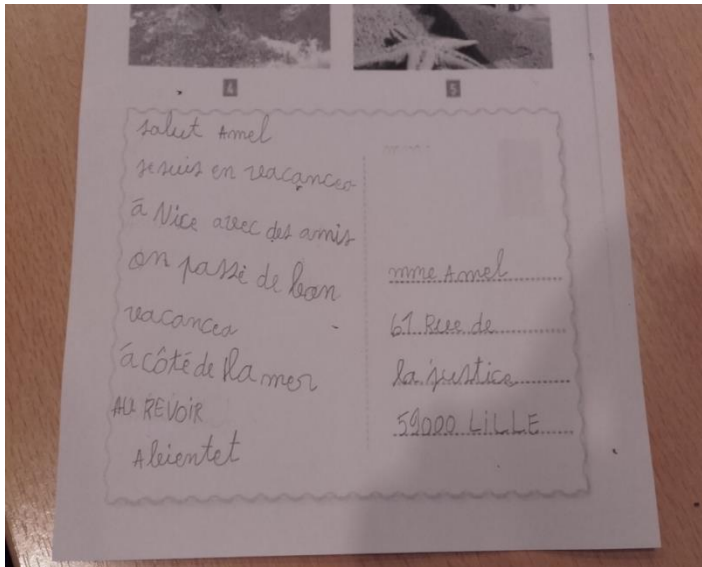 4
5
salut Amel
je suis en vacances
à Nice avec des amis
on passé de bon
vacances
à côté de la mer
AU REVOIR
Abientet
mme Amel
61 Rue de
la justice
59000 LiLLE